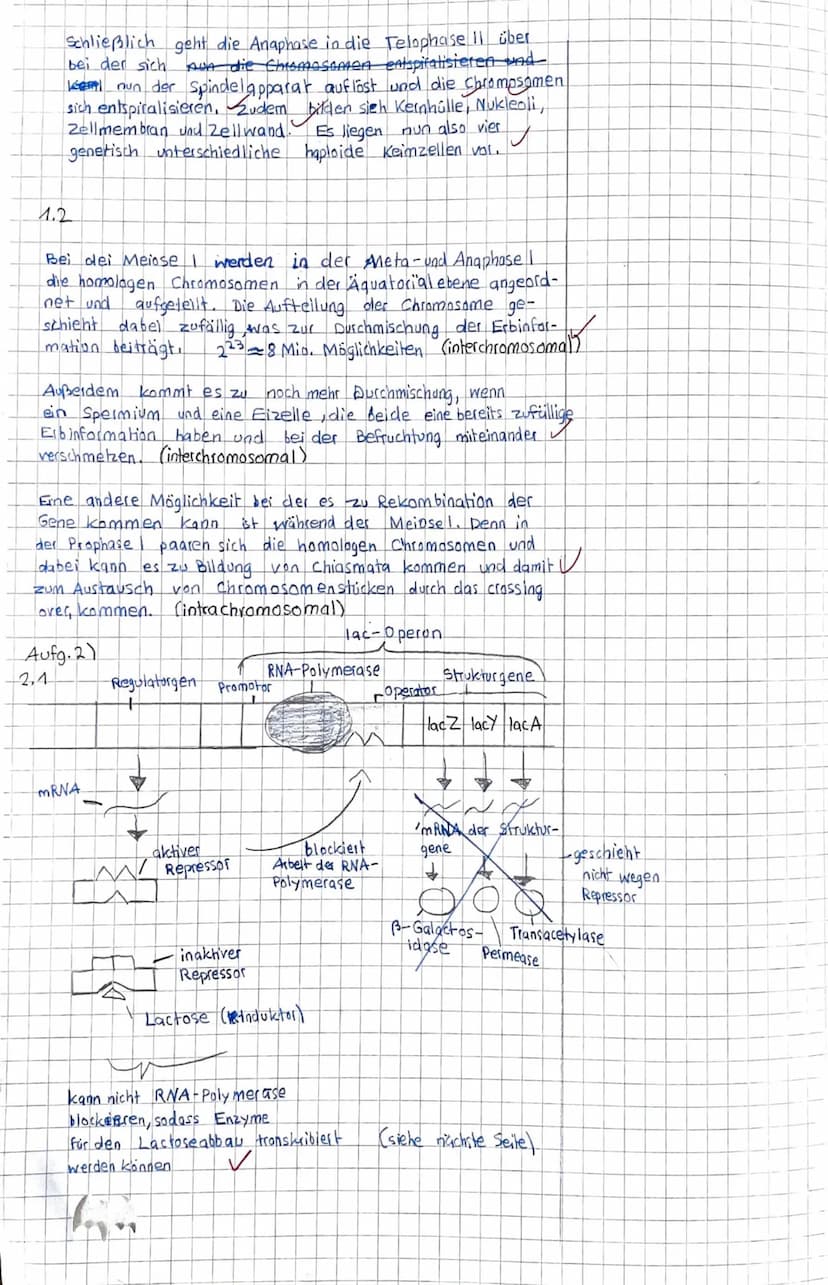 Schließlich geht die Anaphase in die Telophase II über
bei der sich nun die Chromosomen entspiralisieren und
nun der Spindelapparat auflöst und die Chromosomen
sich entspiralisieren. Zudem bilden sich Kernhülle, Nukleoli,
Zellmembran und Zellwand. Es liegen nun also vier
genetisch unterschiedliche haploide Keimzellen vor.
1.2
Bei der Meiose I werden in der Meta- und Anaphase I
die homologen Chromosomen in der Äquatorialebene angeord-
net und aufgeteilt. Die Aufteilung der Chromosome ge-
schieht dabei zufällig, was zur Durchmischung der Erbinfor-
mation beiträgt. 2^23 ≈ 8 Mio. Möglichkeiten (interchromosomal)
Außerdem kommt es zu noch mehr Durchmischung, wenn
ein Spermium und eine Eizelle, die beide eine bereits zufällige
Erbinformation haben und bei der Befruchtung miteinander
verschmelzen. (interchromosomal)
Eine andere Möglichkeit bei der es zu Rekombination der
Gene kommen kann ist während der Meiose I. Denn in
der Prophase I paaren sich die homologen Chromosomen und
dabei kann es zu Bildung von Chiasmata kommen und damit
zum Austausch von Chromosomenstücken durch das crossing
over, kommen. (intrachromosomal)
lac-Operon
Aufg. 2)
2.1
Regulatorgen Promotor RNA-Polymerase Operator Strukturgene
lacZ lacY lacA
mRNA
aktiver
Repressor
blockiert
Arbeit der RNA-
Polymerase
mRNA der Struktur-
gene
geschieht
nicht wegen
Repressor
β-Galactos-
idase
Permease
Transacetylase
inaktiver
Repressor
Lactose (Induktor)
kann nicht RNA-Polymerase
blockieren, sodass Enzyme
für den Lactoseabbau transkribiert (siehe nächste Seite)
werden können